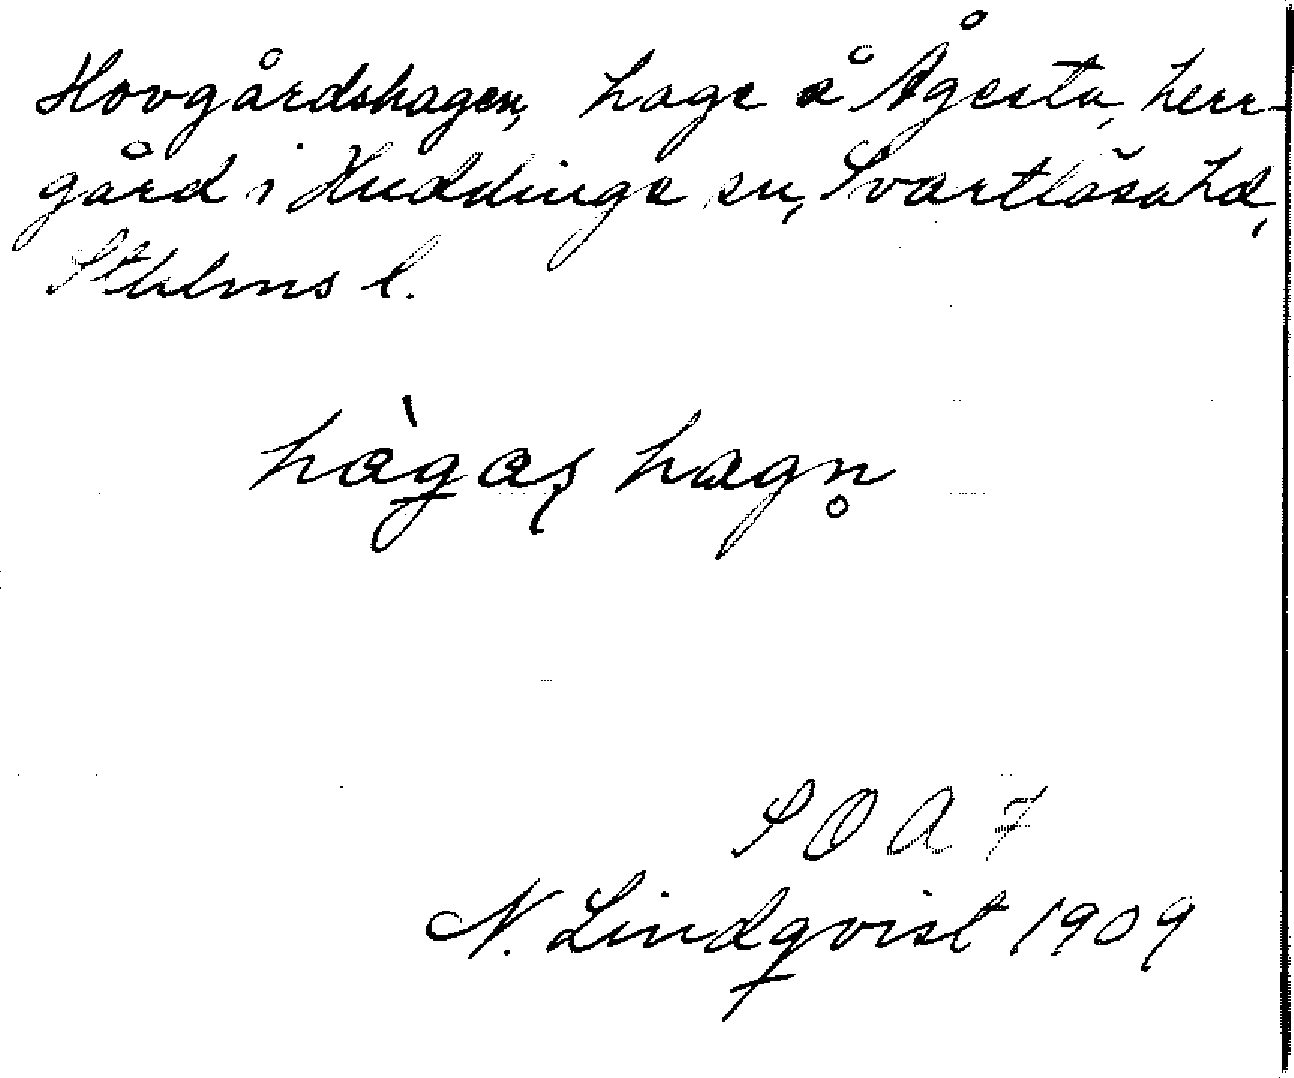 Hovgårdshagen, hage å Ågesta, herr-
gård i Huddinge sn, Svartlösa hd,
Sthlms l.
hàgaʂ hagn̥
S O A 7
N. Lindqvist 1909